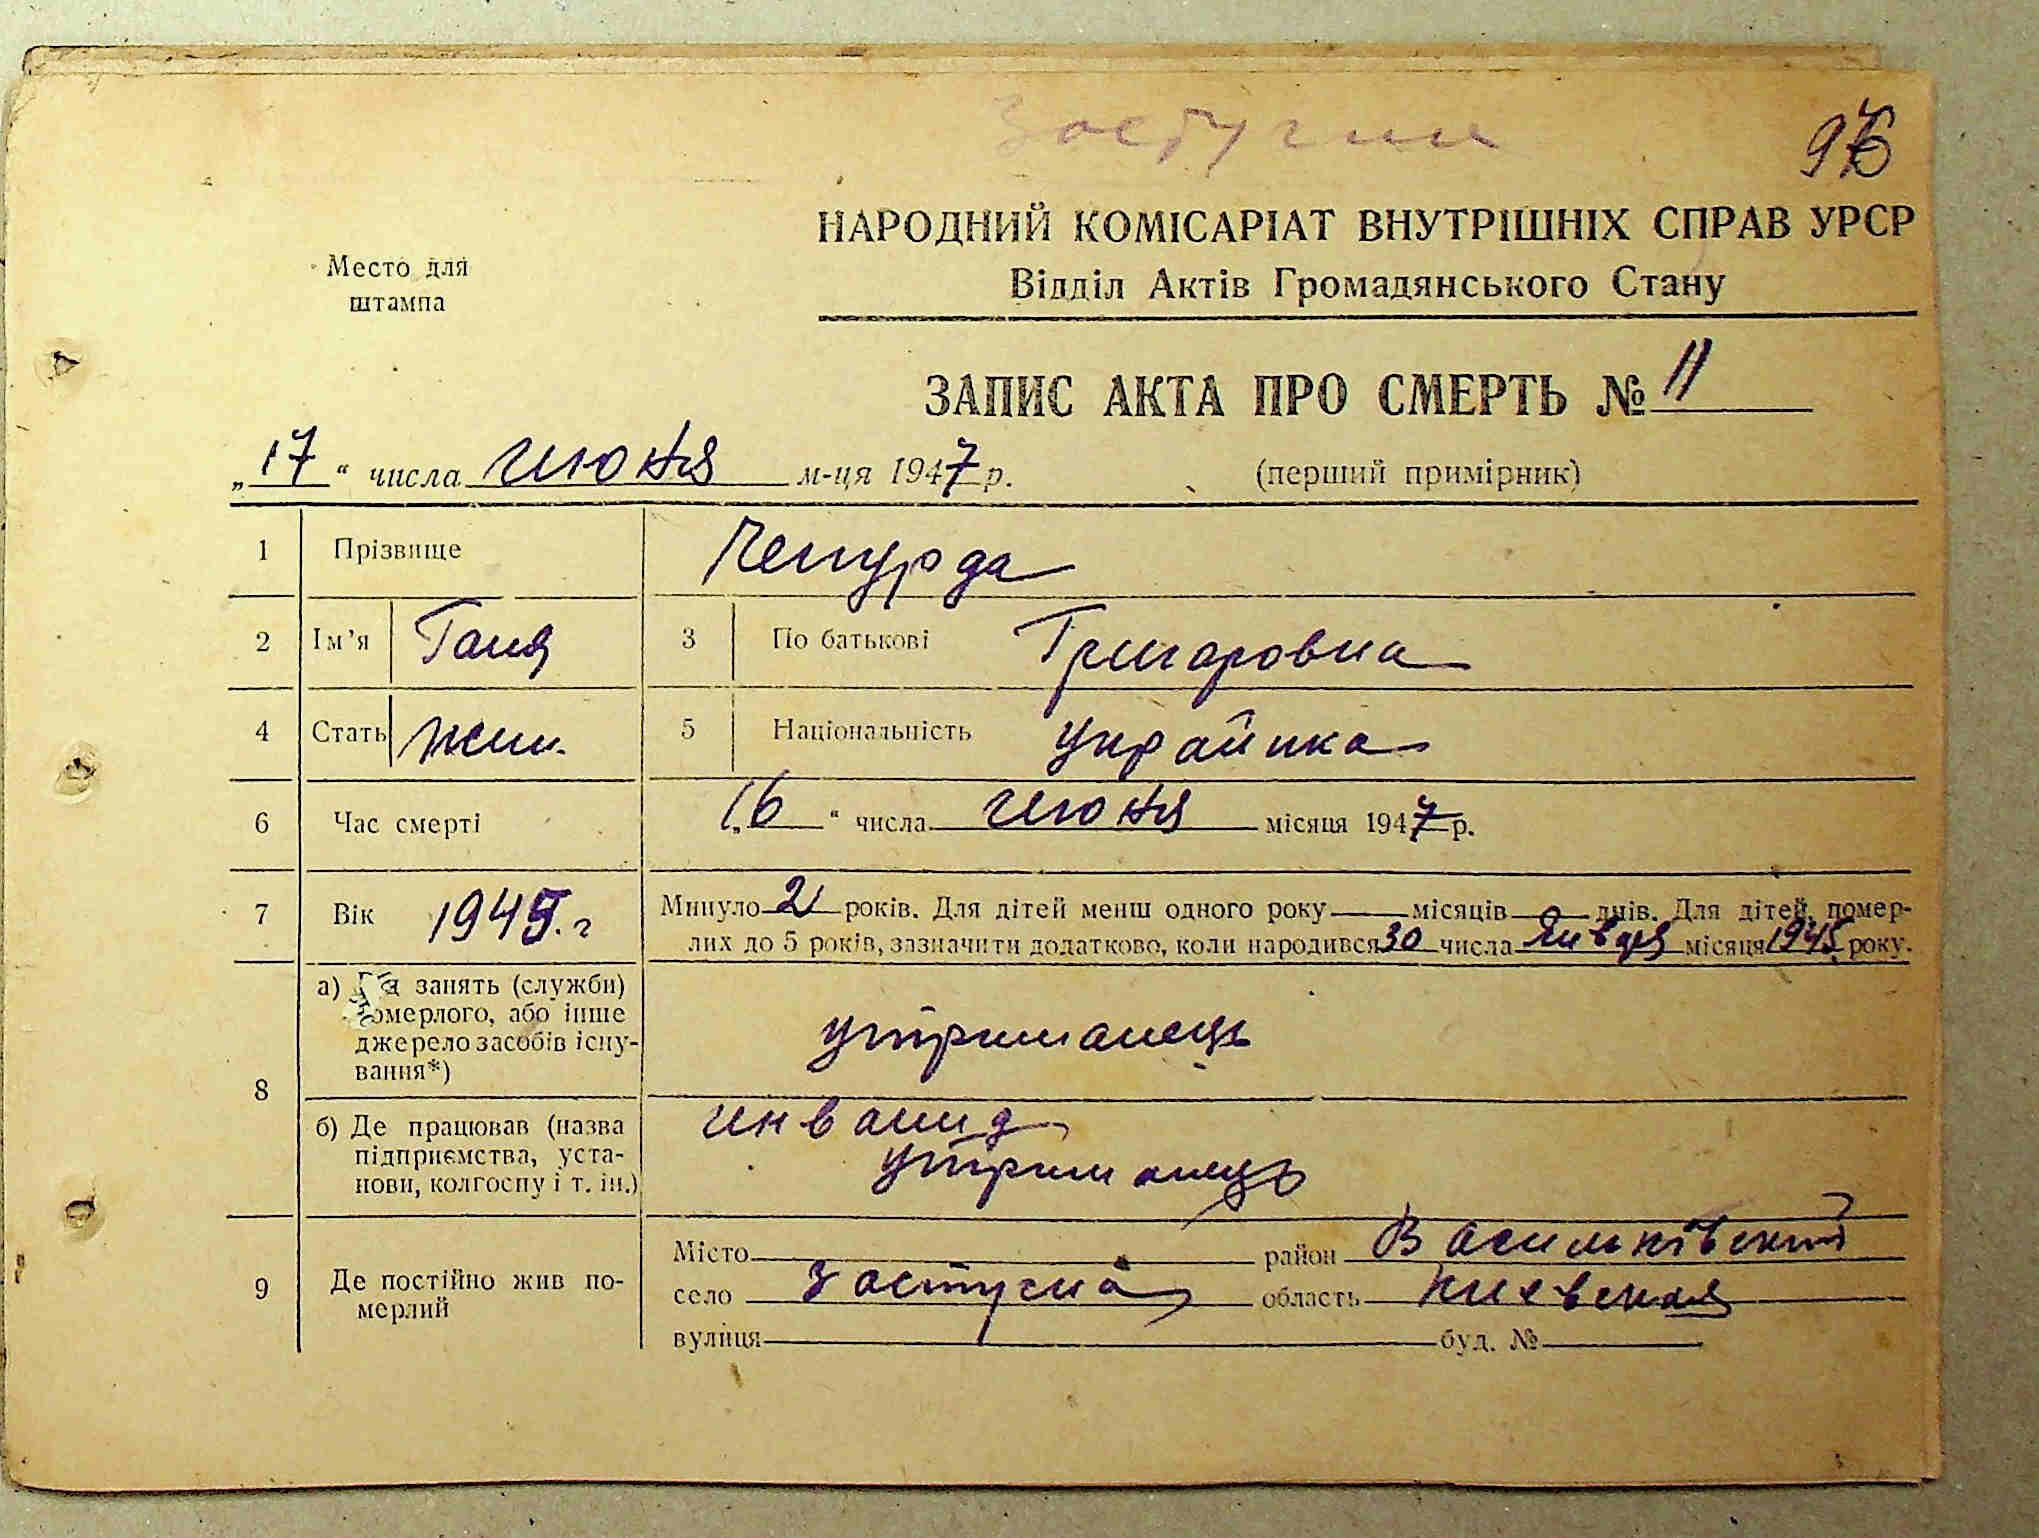 97
НАРОДНИЙ КОМІСАРІАТ ВНУТРІШНІХ СПРАВ УРСР
Место для штампа
Відділ Актів Громадянського Стану
ЗАПИС АКТА ПРО СМЕРТЬ № 11
„17“ числа июня м-ця 1947 р. (перший примірник)
1 Прізвище Чепурда
2 Ім’я Ганя 3 По батькові Григоровна
4 Стать жен. 5 Національність украйнка
6 Час смерті „16“ числа июня місяця 1947 р.
7 Вік 1945.г Минуло 2 років. Для дітей менш одного року місяців днів. Для дітей, помер-
лих до 5 років, зазначити додатково, коли народився 30 числа Января місяця 1945 року.
8 а) занять (службы)
померлого, або інше
джерело засобів існу-
вання*) утриманець
б) Де працював (назва
підприємства, уста-
нови, колгоспу і т. ін.) инвалид
утриманець
9 Де постійно жив по-
мерлий
Місто район Васильківский
село Застугна область Киевская
вулиця буд. №